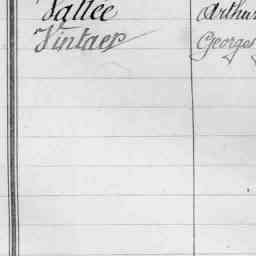 Vallée Arthur
Vintaer Georges